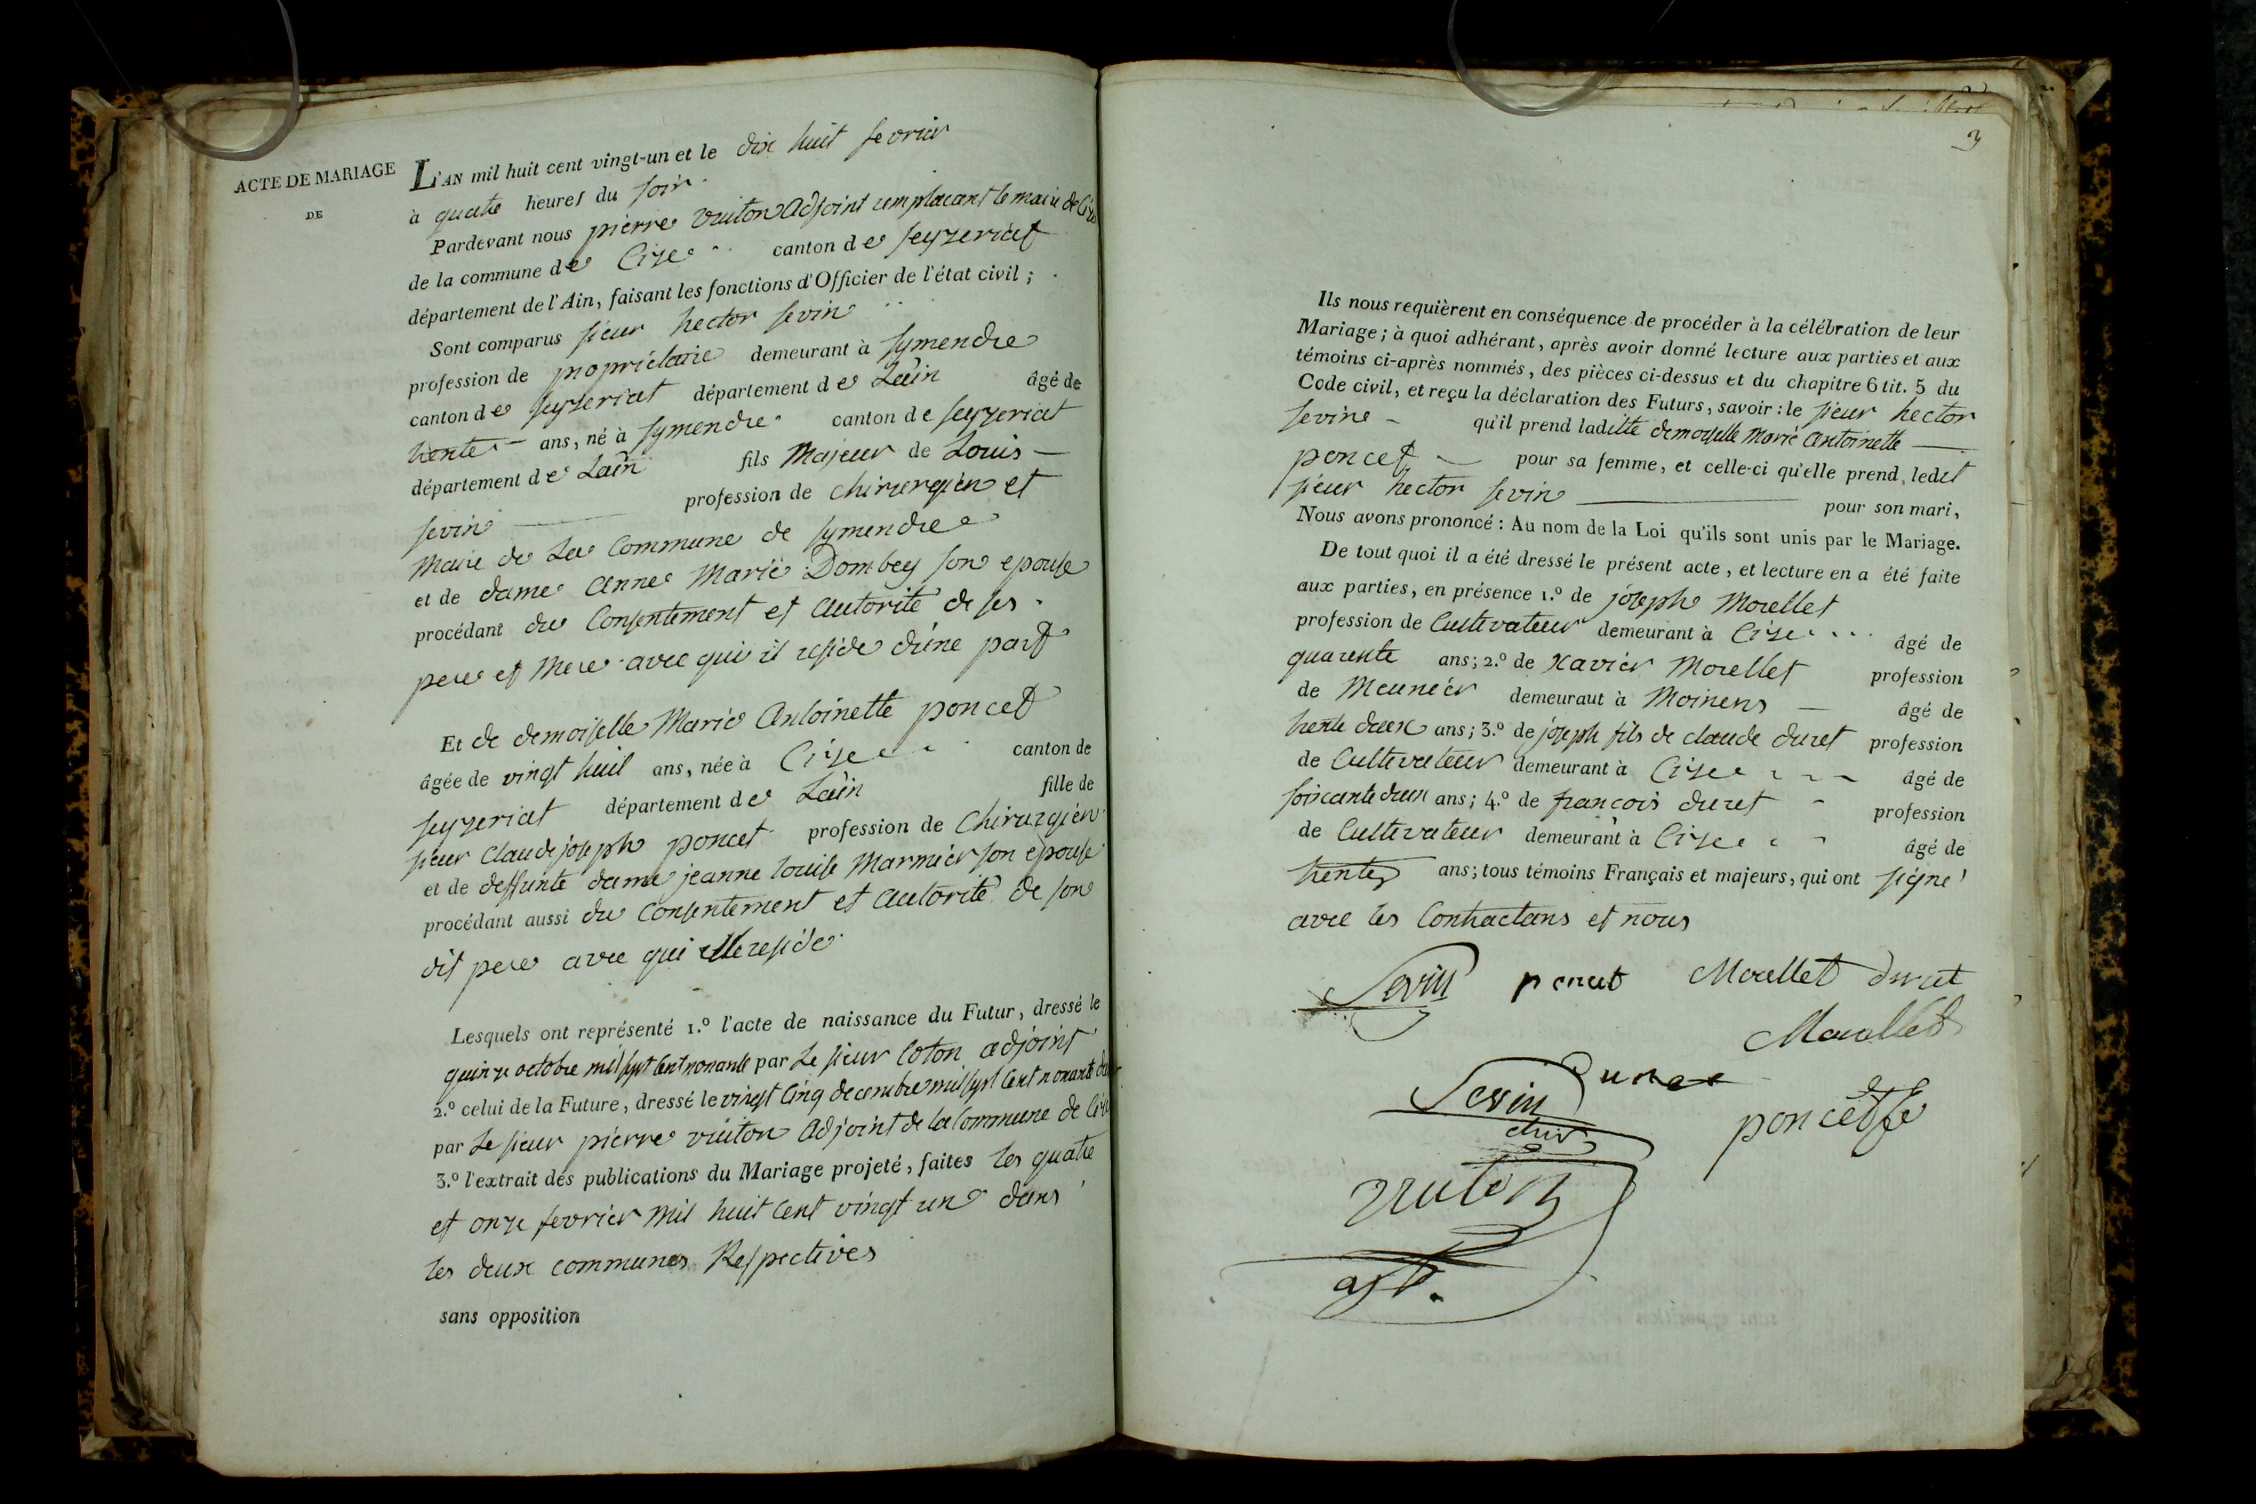 ACTE DE MARIAGE
DE
L'AN mil huit cent vingt-un et le dix huit fevrier
à quatre heures du soir
Pardevant nous pierre vuiton adjoint remplacant le maire de Cize
de la commune de Cize canton de seyzeriat
département de l'Ain, faisant les fonctions d'Officier de l'état civil;
Sont comparus sieur hector sevin
profession de propriétaire demeurant à symendre
canton de seyzeriat département de Lain âgé de
trente ans, né à symendre canton de seyzeriat
département de Lain fils Majeur de Louis
sevin profession de chirurgien et
Maire de La Commune de symendre
et de dame anne Marie Dombey son epouse
procédant du Consentement et autorité de ses
pere et Mere avec qui il reside d'une part
Et de demoiselle Marie Antoinette poncet
âgée de vingt huit ans, née à Cize canton de
seyzeriat département de Lain fille de
sieur claude joseph poncet profession de Chirurgien
et de deffunte dame jeanne louise Marmier son epouse
procédant aussi du Consentement et autorité de son
dit pere avec qui elle reside
Lesquels ont représenté 1.º l'acte de naissance du Futur, dressé le
quinze octobre mil sept Cent nonante par Le sieur Coton adjoint
2.º celui de la Future, dressé le vingt Cinq decembre mil sept Cent nonante deux
par Le sieur pierre vuiton Adjoint de la Commune de Cize
3.º l'extrait des publications du Mariage projeté, faites les quatre
et onze fevrier Mil huit Cent vingt un dans
les deux communes Respectives
sans opposition
3
Ils nous requièrent en conséquence de procéder à la célébration de leur
Mariage; à quoi adhérant, après avoir donné lecture aux parties et aux
témoins ci-après nommés, des pièces ci-dessus et du chapitre 6 tit. 5 du
Code civil, et reçu la déclaration des Futurs, savoir: le sieur hector
sevin qu'il prend laditte demoiselle Marie Antoinette
poncet pour sa femme, et celle-ci qu'elle prend, ledit
sieur hector sevin pour son mari,
Nous avons prononcé: Au nom de la Loi qu'ils sont unis par le Mariage.
De tout quoi il a été dressé le présent acte, et lecture en a été faite
aux parties, en présence 1.º de joseph Morellet
profession de Cultivateur demeurant à Cize âgé de
quarente ans; 2.º de xavier Morellet profession
de Meunier demeuraut à Moinens âgé de
trente deux ans; 3.º de joseph fils de claude duret profession
de Cultivateur demeurant à Cize âgé de
soixante deux ans; 4.º de françois duret profession
de Cultivateur demeurant à Cize âgé de
trente ans; tous témoins Français et majeurs, qui ont signé
avec les Contractans et nous
Sevin poncet Morellet duret
Morellet
Duret
Sevin
chir
poncet
vuiton
adj.